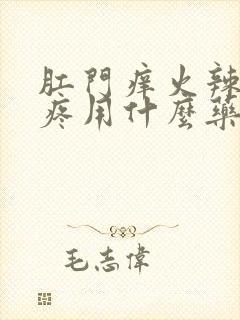 肛門痒火辣
疼用什麽藥
毛志偉